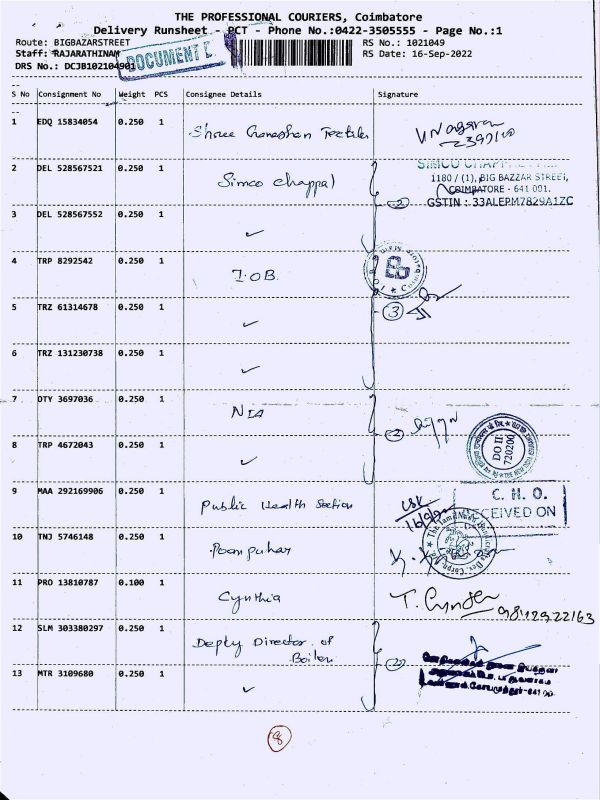 THE PROFESSIONAL COURIERS, Coimbatore
Delivery Runsheet - PCT - Phone No.:0422-3505555 - Page No.:1
Route: BIGBAZARSTREET RS No.: 1021049
Staff: RAJARATHINAM RS Date: 16-Sep-2022
DOCUMENT
DRS No.: DCJB102104901
S No Consignment No Weight PCS Consignee Details Signature
1 EDQ 15834054 0.250 1 Shree Ganeshan Textiles
2 DEL 528567521 0.250 1 Simco Chappal
1180 / (1), BIG BAZZAR STREET,
COIMBATORE - 641 001.
GSTIN : 33ALEPM7829A1ZC
3 DEL 528567552 0.250 1 ✓
4 TRP 8292542 0.250 1 I.O.B
5 TRZ 61314678 0.250 1 ✓ 3
6 TRZ 131230738 0.250 1 ✓
7 OTY 3697036 0.250 1 NIA 2
8 TRP 4672043 0.250 1 ✓
DO II:
720200
9 MAA 292169906 0.250 1 Public Health Section
C. H. O.
RECEIVED ON
10 TNJ 5746148 0.250 1 Poompuhar
11 PRO 13810787 0.100 1 Cynthia
12 SLM 303380297 0.250 1 Depty Director of
Boilers 2
13 MTR 3109680 0.250 1 ✓
8